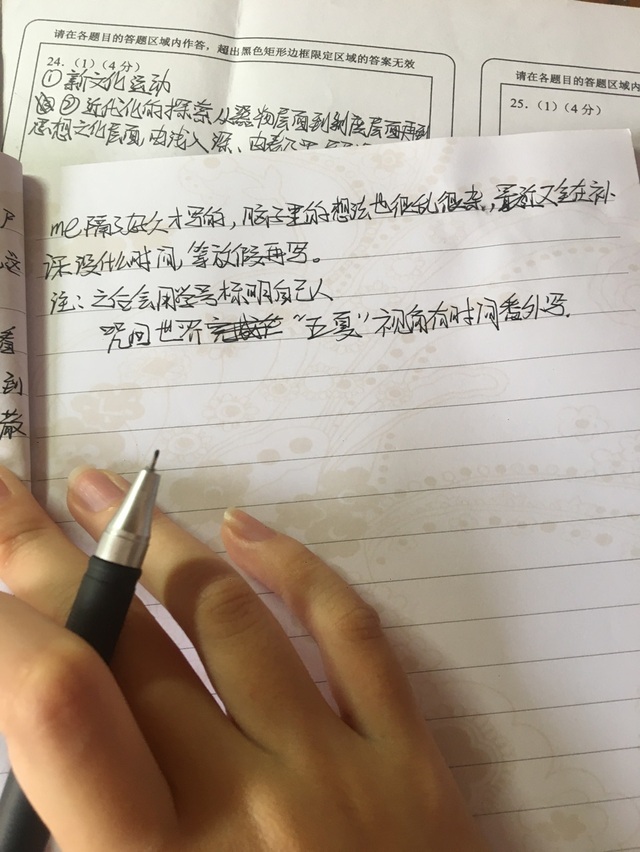 请在各题目的答题区域内作答，超出黑色矩形边框限定区域的答案无效
24.（1）（4 分）
①新文化运动
②近代化的探索从器物层面到制度层面再到
思想文化层面，由浅入深、由表
请在各题目的答题区域内
25.（1）（4 分）
这
看
到
散
me隔了好久才写的，脑子里的想法也很乱很杂，最近又全在补
课没什么时间，等放假再写。
注：之后会用学号标明自己人
咒回世界 "五夏"视角有时间番外写.